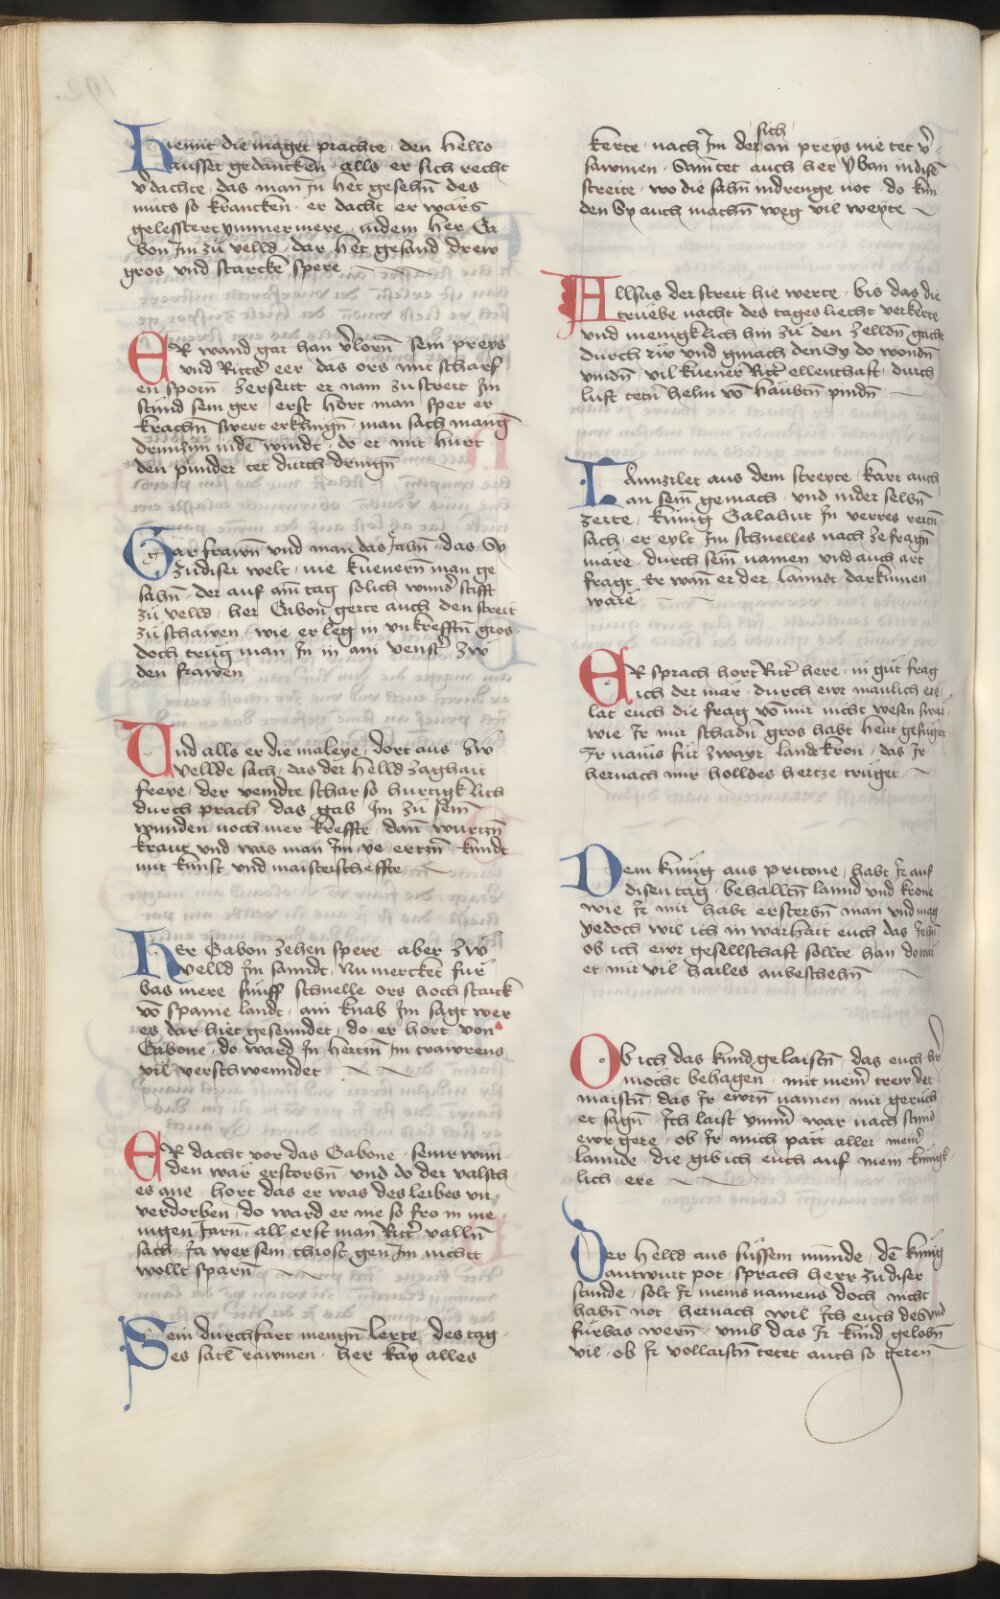 Hiemit die maget prachte · den Helld
ausser gedancken · alls er sich recht
v̄dachte · das man jn het gesehn̄ des
muts so krancken · er dacht er wars
gelesstert ymmermere · indem her Ga
bon jm zu velld · dar het gesand drew
gros vnd starcke spere
ER wand gar han v̄lorn̄ sein preys
vnd Ritters eer das ors mit scharf
en sporn̄ zersert er nam zu streit jm
stund sein ger · erst hort man sper er
krachn̄ swert erklingn̄ · man sach mang
drunzun in dē windt · do er mit hurt
den punder tet durch dringn̄
Gar frawn̄ vnd man das jahn̄ · das Sy
zu diser welt · nie kuenern̄ man ge
sahn̄ · der auf ain tag solich wund̄ stifft
zu velld · her Gabon gerte auch den streit
zu schawen · wie er leg in vnkrefftn̄ gros
doch trug man jn in ain venst̄ zw
den frawen
Und alls er die maleye · dort aus zw
vellde sach · das der Helld zaghait
freye · der veindte schar so hurtigklich
durch prach · das gab jm zu sein̄
wunden noch mer kreffte · dann̄ wurtzn̄
kraut vnd was man jm ye ertzn̄ kunde
mit kunst vnd maisterscheffte
Her Gabon zehen spere aber zw
velld jm sanndt · Nu mercket fur
bas mere · funff schnelle ors hoch starck
vō spanie landt · ain knab jm sagt wer
es dar hiet gesenndet · do er hort von
Gabone · do ward jn hertzn̄ jm trawrens
vil verschwenndet
ER dacht vor das Gabone · seinr wun
den war erstorbn̄ · vnd do der valsch
es ane · hort das er was des leibes vn
verdorben · do ward er nie so fro in me
nigen Jarn̄ · all erst man Rittr̄ valln̄
sach · Ja wer sein thiost gen jm nicht
wollt sparn̄
Sein durchfart mengn̄ lerte · des tag
es satl̄ rawmen · her kay alles
kerte · nach jm der sich an preys nie tet v̄
sawmen · Sam tet auch her Yban in disē
streite · wo die sahn̄ indrenge not · do kun
den Sy auch machn̄ weg vil weyte
Allsus der streit hie werte · bis das die
truebe nacht des tages liecht verkerte
vnd menigklich hin zu den zelldn̄ gacht
durch ruw vnd gmach den Sy do wondn̄
vindn̄ · vil kuener Rittr̄ ellenthaft · durch
luft tetn̄ helm vō haubtn̄ pindn̄
LAnnzlet aus dem streyte · kart auch
an sein̄ gemach · vnd in der selbn̄
zeite · kunig Galahut jn verres reitn̄
sach · er eylt jm schnelles nach ze fragn̄
mare · durch sein̄ namen vnd auch art
fragt Er wann er der lanndt dar kumen
ware
ER sprach hort Rittr̄ here · in gut frag
ich der mar · durch ewr manlich ere
lat euch die frag vō mir nicht wesen swar
wie jr mir schadn̄ gros habt heut gefuget
Jr nams für zwayr lande kron · das jr
hernach mir holldes hertze truget
Dem kunig aus pritone · habt jr auf
disen tag · behalltn̄ lannd vnd krone
wie jr mir habt ersterbn̄ man vnd mag
yedoch wil ich in warhait euch das jehn̄
ob ich ewr gesellschaft sollte han do mit
er mir vil hailes an beschehn̄
Ob ich das kund gelaistn̄ · das euch hr̄
mocht behagen · mit mein̄ trew der
maistn̄ das jr ewrn̄ namen mir geruch
et sagn̄ · Ich laist ymm̄ war nach stund
ewr gere · ob jr mich patt aller mein̄
lannde · die gib ich euch auf mein kunigk
lich ere
Der Helld aus sussem munde · dē kunig
antwurt pot · sprach herr zu diser
stunde · solt jr meins namens doch nicht
habn̄ not · hernach wil jch euch des vnd
furbas wern̄ · vmb das jr kund gelobn̄
vil · ob jr vollaistn̄ tetet auch so geren̄